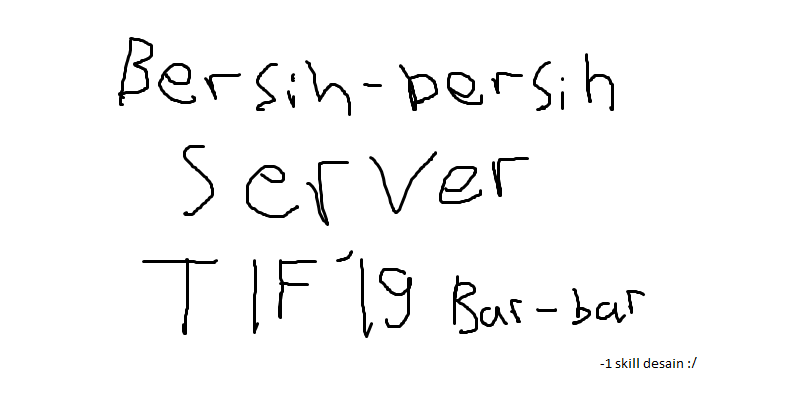 Bersih-bersih
Server
TIF'19 Bar-bar
-1 skill desain :/